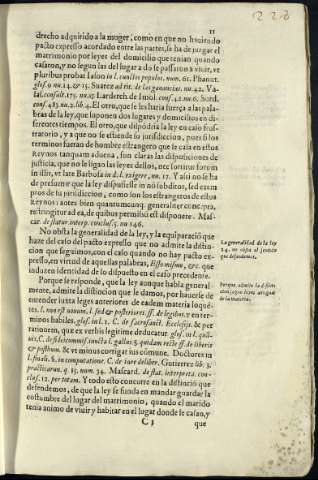 11
226
drecho adquirido a la muger, como en que no hauiendo
pacto expresso acordado entre las partes, se ha de juzgar el
matrimonio por leyes del domicilio que tenian quando
casaron, y no segun las del lugar a do se passaron a viuir, vt
pluribus probat Iason in l. cunctos populos, num. 61. Phanut.
glos. 9 nu. 14. & 15. Suarez ad rit. de las ganancias, nu. 42. Va-
las. consult. 175. nu. Larderch de Imol. cons. 42 nu. 6. Surd.
cons. 485 nu. 2. lib. 4. El otro, que se les haria fuerça a las pala-
bras de la ley, que suponen dos lugares y domicilios en di-
ferentes tiempos. El otro, que dispõdria la ley en caso frus-
tratorio, y a que no se estiende su juridiccion, pues si los
terminos fueran de hombre estrangero que se casa en estos
Reynos tanquam aduena, son claras las disposiciones de
justicia, que no le ligan las leyes dellos, nec sortitur forum
in illis, vt late Barbosa in d. l. exigere, nu. 17. Y assi no se ha
de presumir que la ley dispusiesse in nõ subditos, sed extra-
pros de su juridiccion, como son los estrangeros de estos
Reynos: antes bien quantumcunq. generaliter concepta,
restringitur ad ea, de quibus permissũ est disponere. Mas-
car. de statut. interp. conclus. 5. nu. 146.
No obsta la generalidad de la ley, y la equiparaciõ que
haze del caso del pacto expresso que no admite la distin-
cion que seguimos, con el caso quando no hay pacto ex-
presso, en virtud de aquellas palabras, Esso mismo, &c. que
inducen identidad de lo dispuesto en el caso precedente.
La generalidad de la ley
24. no tapa al juicio
que defendemos.
Porque se responde, que la ley aunque habla general-
mente, admite la distincion que le damos, por hauerse de
entender iuxta leges anteriores de eadem materia loquẽ-
tes. l. non est nouum, l. sed & posteriores. ff. de legibus. & ter-
minos habiles. glos. in l. 1. C. de sacrosanct. Ecclesijs. & per
rationem, quæ ex verbis legitime deducatur glos. in l. quã-
uis, C. de fideicommiss. sancta l. gallus §. quidam recte ff. de liberis
& posthum. & vt minus corrigat ius commune. Doctores in
l. finali. §. in computatione. C. de iure deliber. Gutierrez lib. 3.
practicarum. q. 15. num. 34. Mascard. de stat. interpreta. con-
clus. 12. per totam. Y todo esto concurre en la distinciõ que
defendemos, de que la ley se funda en mandar guardar la
costumbre del lugar del matrimonio, quando el marido
tenia animo de viuir y habitar en el lugar donde se casan, y
Porque, admite la distin-
cion, segun leyes antiguas
de la materia.
C 3
que